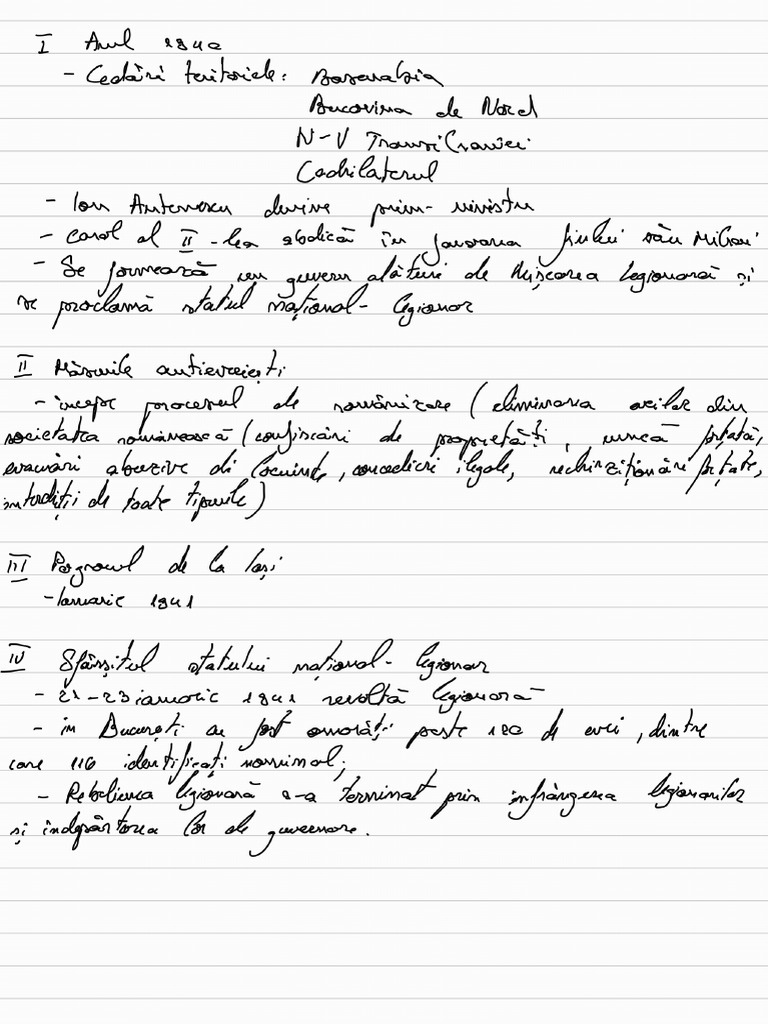 I Anul 1940
- Cedări teritoriale: Basarabia
Bucovina de Nord
N-V Transilvaniei
Cadrilaterul
- Ion Antonescu devine prim-ministru
- Carol al II-lea abdică în favoarea fiului său Mihai
- Se formează un guvern alături de Mișcarea Legionară și
se proclamă statul național-legionar
II Măsurile antievreiești
- începe procesul de românizare (eliminarea evreilor din
societatea românească (confiscări de proprietăți, muncă forțată,
evacuări abuzive din locuințe, concedieri ilegale, rechiziționări forțate,
interdicții de toate tipurile)
III Pogromul de la Iași
- Ianuarie 1941
IV Sfârșitul statului național-legionar
- 21-23 ianuarie 1941 revoltă legionară
- în București au fost omorâți peste 120 de evrei, dintre
care 116 identificați nominal;
- Rebeliunea legionară s-a terminat prin înfrângerea legionarilor
și îndepărtarea lor de guvernare.